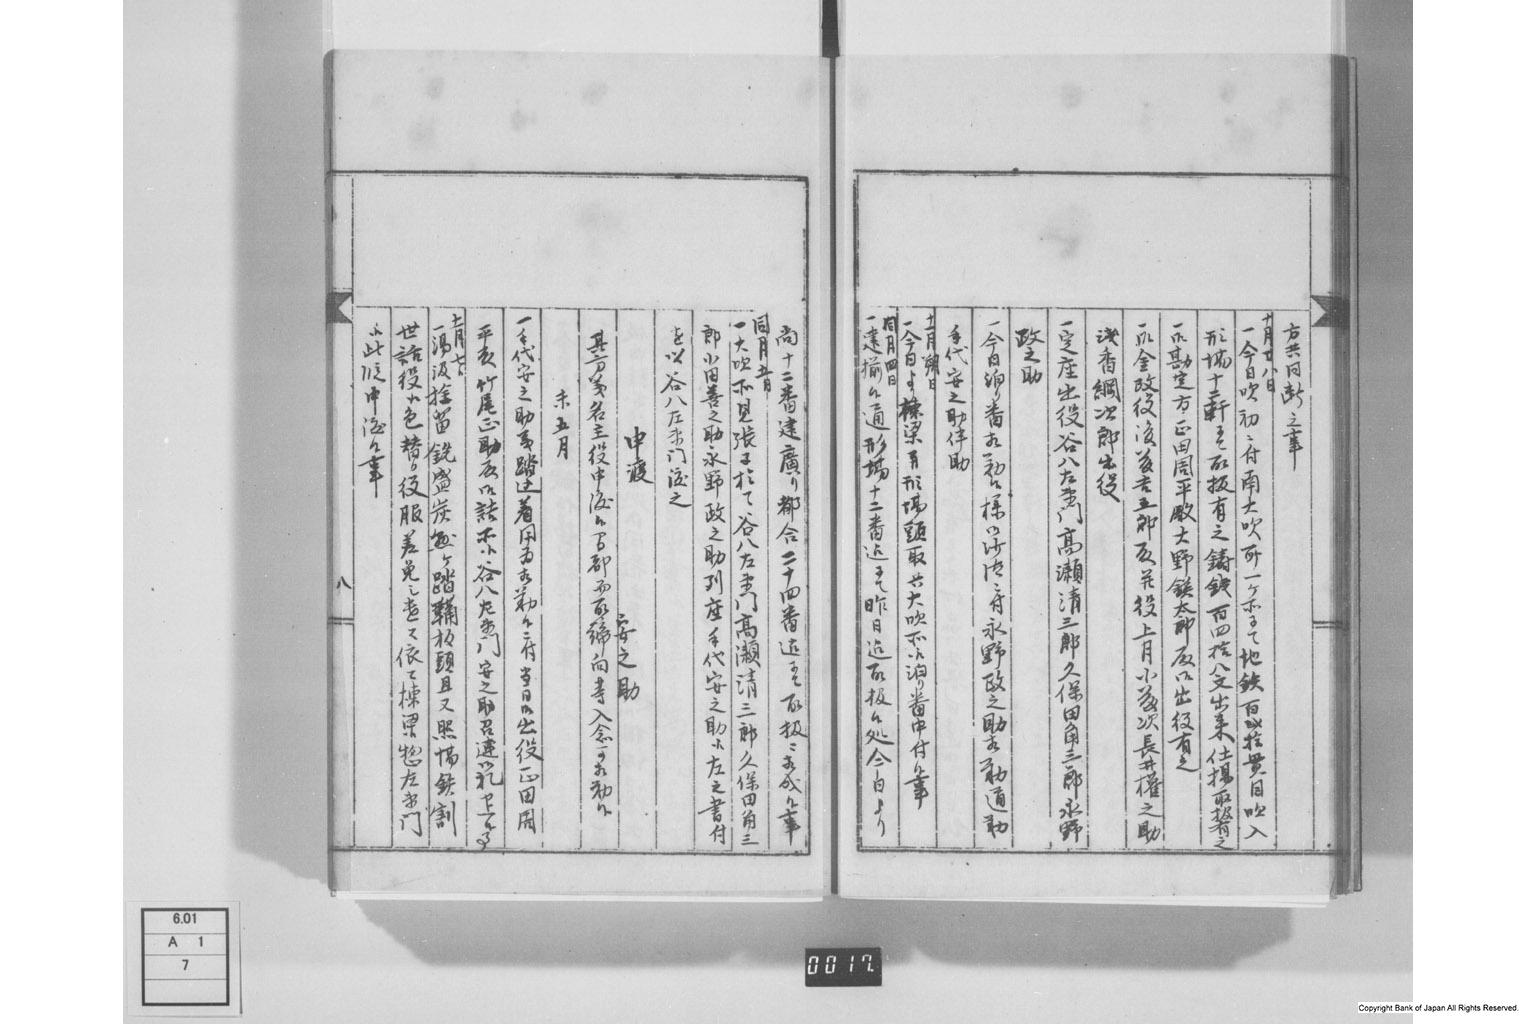 方共同断之事
十月廿八日
一今日吹初ニ付南大吹所一ケ所ニて地鉄百弐拾貫目吹入
形場十二軒ニて取扱有之鋳銭百四拾八文出来仕揚取扱有之
一御勘定方正田周平殿大野鉄太郎殿御出役有之
一御金改役後藤吉五郎殿花役上月小藤次長井権之助
浅香綱次郎出役
一定座出役谷八左衛門高瀬清三郎久保田角三郎永野
政之助
一今日泊り番相勤候様御沙汰ニ付永野政之助相勤通勤
手代安之助伴助
十一月朔日
一今日より棟梁并形場頭取共大吹所泊り番申付候事
同月四日
一建揃候通形場十二番迄ニて昨日迄取扱候処今日より
尚十二番建廣り都合二十四番迄ニて取扱ニ相成候事
同月五日
一大吹所見張ニ於て谷八左衛門高瀬清三郎久保田角三
郎小田善之助永野政之助列座手代安之助江左之書付
を以谷八左衛門渡之
申渡
安之助
其方義名主役申渡候間都而取締向等入念可相勤候
未五月
一手代安之助義踏込着用為相勤候ニ付当日御出役正田周
平殿竹尾正助殿御詰所江谷八左衛門安之助召連御礼申上候事
十一月七日
一湯汲拴留銑盛炭悪ケ踏鞴板頭且又熊惕鉄割
世話役小色替り役服差免し遣ス依て棟梁惣左衛門
江此段申渡候事
八
6.01
A 1
7
0017
Copyright Bank of Japan All Rights Reserved.